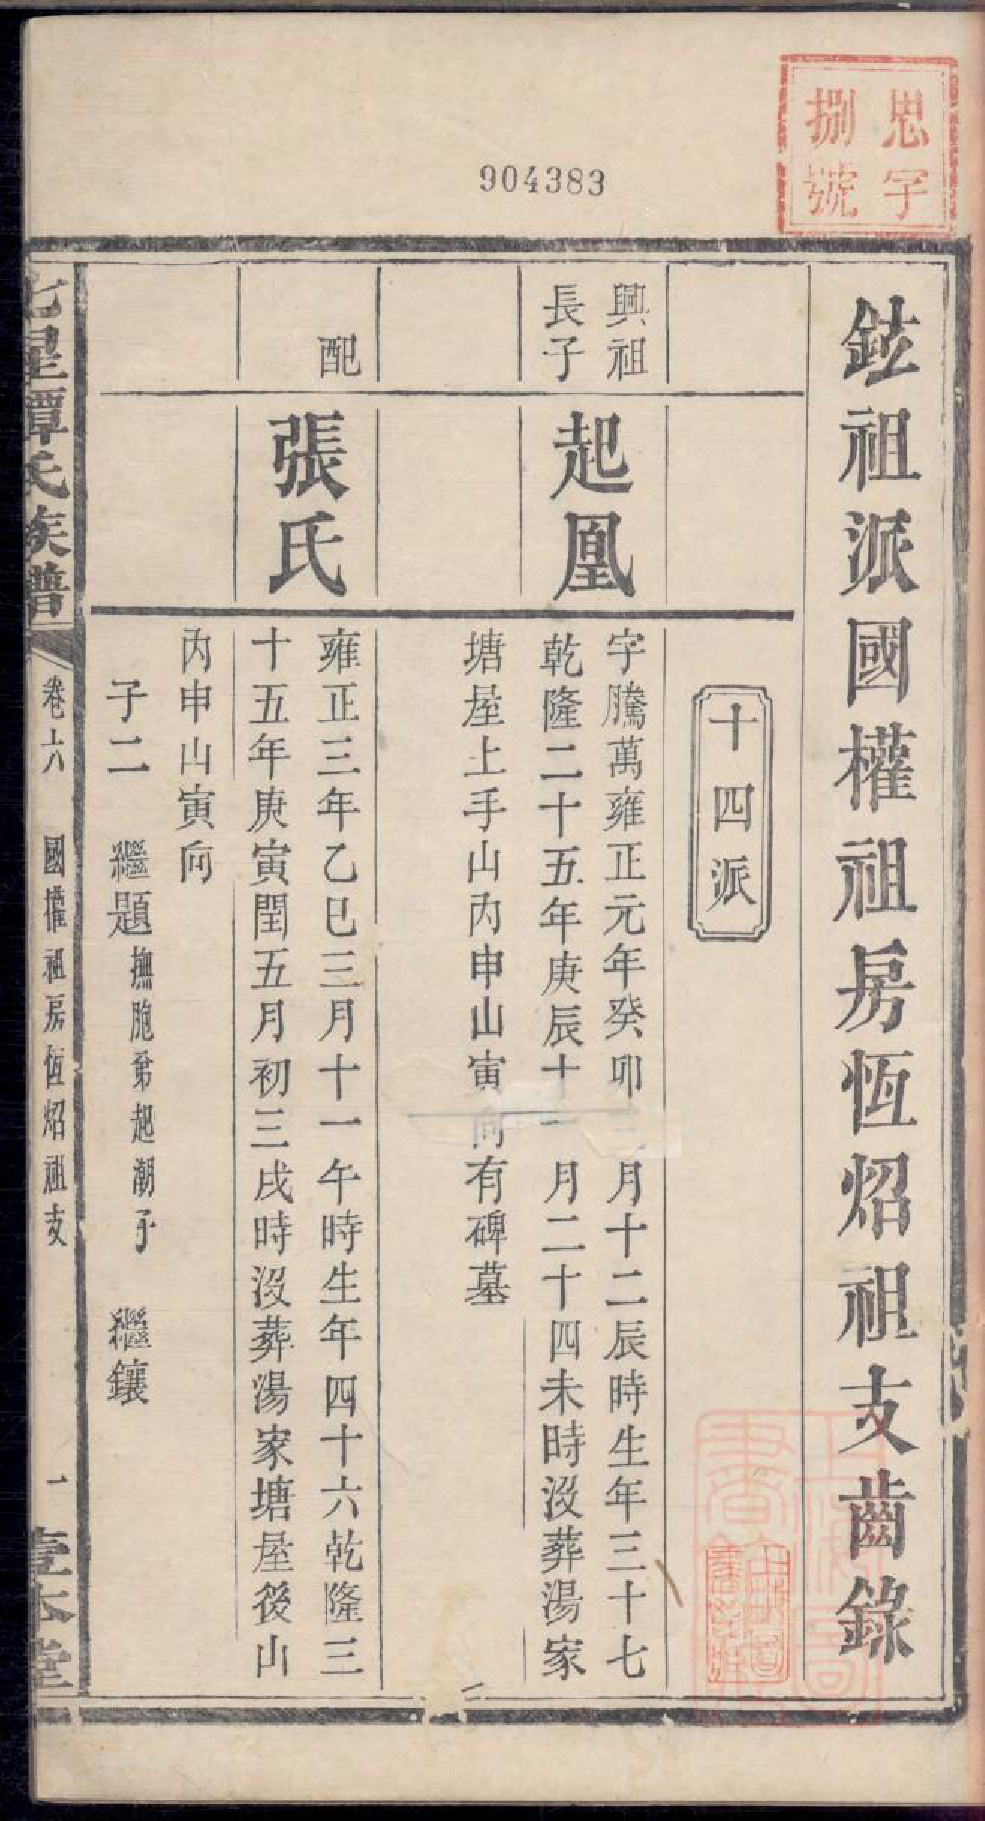 思字
捌號
904383
鉉祖派國權祖房恆炤祖支齒錄
十四派
興祖
長子
起鳳
字騰萬雍正元年癸卯三月十二辰時生年三十七
乾隆二十五年庚辰十一月二十四未時沒葬湯家
塘屋上手山丙申山寅向有碑墓
配
張氏
雍正三年乙巳三月十一午時生年四十六乾隆三
十五年庚寅閏五月初三戌時沒葬湯家塘屋後山
丙申山寅向
子二 繼題 撫胞弟起潮子 繼鑲
七星譚氏族譜 卷六 國權祖房恆炤祖支 一 壹本堂